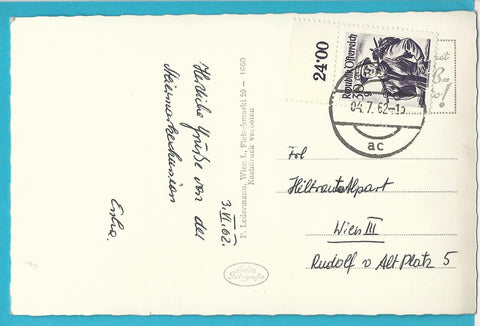 Herzliche Grüße von der
Steiermark
3.VII.62.
P. Ledermann, Wien I., Fleischmarkt 20 – 1960
Nachdruck verboten
Echte
Fotografie
24·00
Republik Österreich
04.7.62-1
ac
Frl
Hiltraute Alpart
Wien III
Rudolf v Alt Platz 5